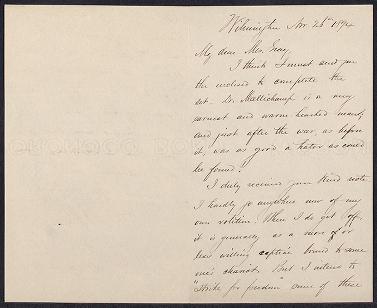 Wilmington Nov. 26th 1894
My dear Mrs. Gray,
I think I must send you
the enclosed to complete the
set. Dr. Mellichamp is a very
earnest and warm hearted man,
and just after the war, as before
it, was as good a hater as could
be found!
I duly received your kind note
I hardly go anywhere now of my
own volition. When I do get off,
it is generally as a more or
less willing captive bound to some
one's chariot. But I intend to
"strike for freedom" some of these